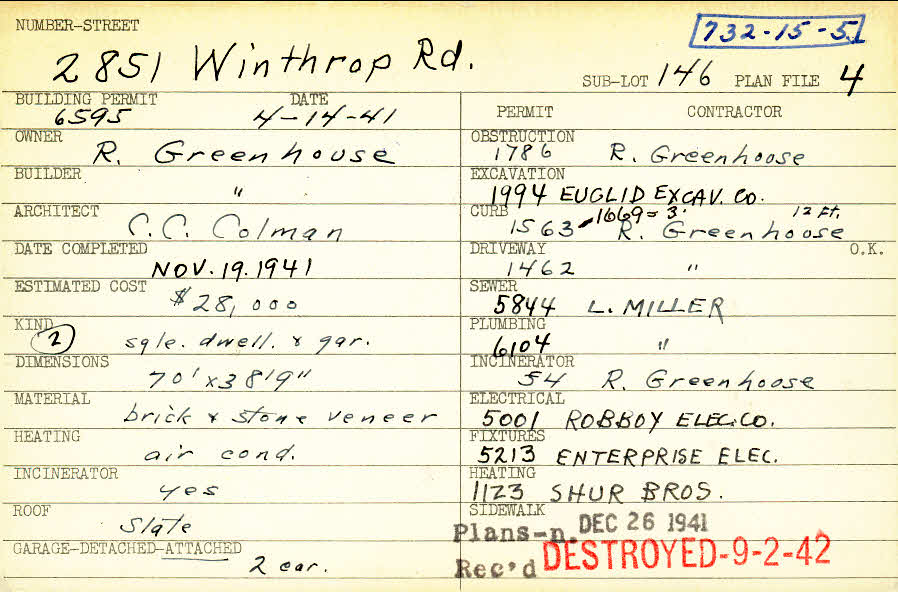 NUMBER-STREET
732-15-51
2851 Winthrop Rd.
SUB-LOT 146 PLAN FILE 4
BUILDING PERMIT DATE
6595 4-14-41
OWNER
R. Greenhouse
BUILDER
"
ARCHITECT
C.C. Colman
DATE COMPLETED
NOV. 19. 1941
ESTIMATED COST
$28,000
KIND
2 sgle. dwell. & gar.
DIMENSIONS
70' x 38'9"
MATERIAL
brick & stone veneer
HEATING
air cond.
INCINERATOR
yes
ROOF
Slate
GARAGE-DETACHED-ATTACHED
2 car.
PERMIT CONTRACTOR
OBSTRUCTION
1786 R. Greenhoose
EXCAVATION
1994 EUGLID EXCAV. CO.
CURB 1669=3' 12 Ft.
1563 R. Greenhoose
DRIVEWAY O.K.
1462 "
SEWER
5844 L. MILLER
PLUMBING
6104 "
INCINERATOR
54 R. Greenhoose
ELECTRICAL
5001 ROBBOY ELEC. CO.
FIXTURES
5213 ENTERPRISE ELEC.
HEATING
1123 SHUR BROS.
SIDEWALK
Plans-n. DEC 26 1941
Rec'd DESTROYED-9-2-42